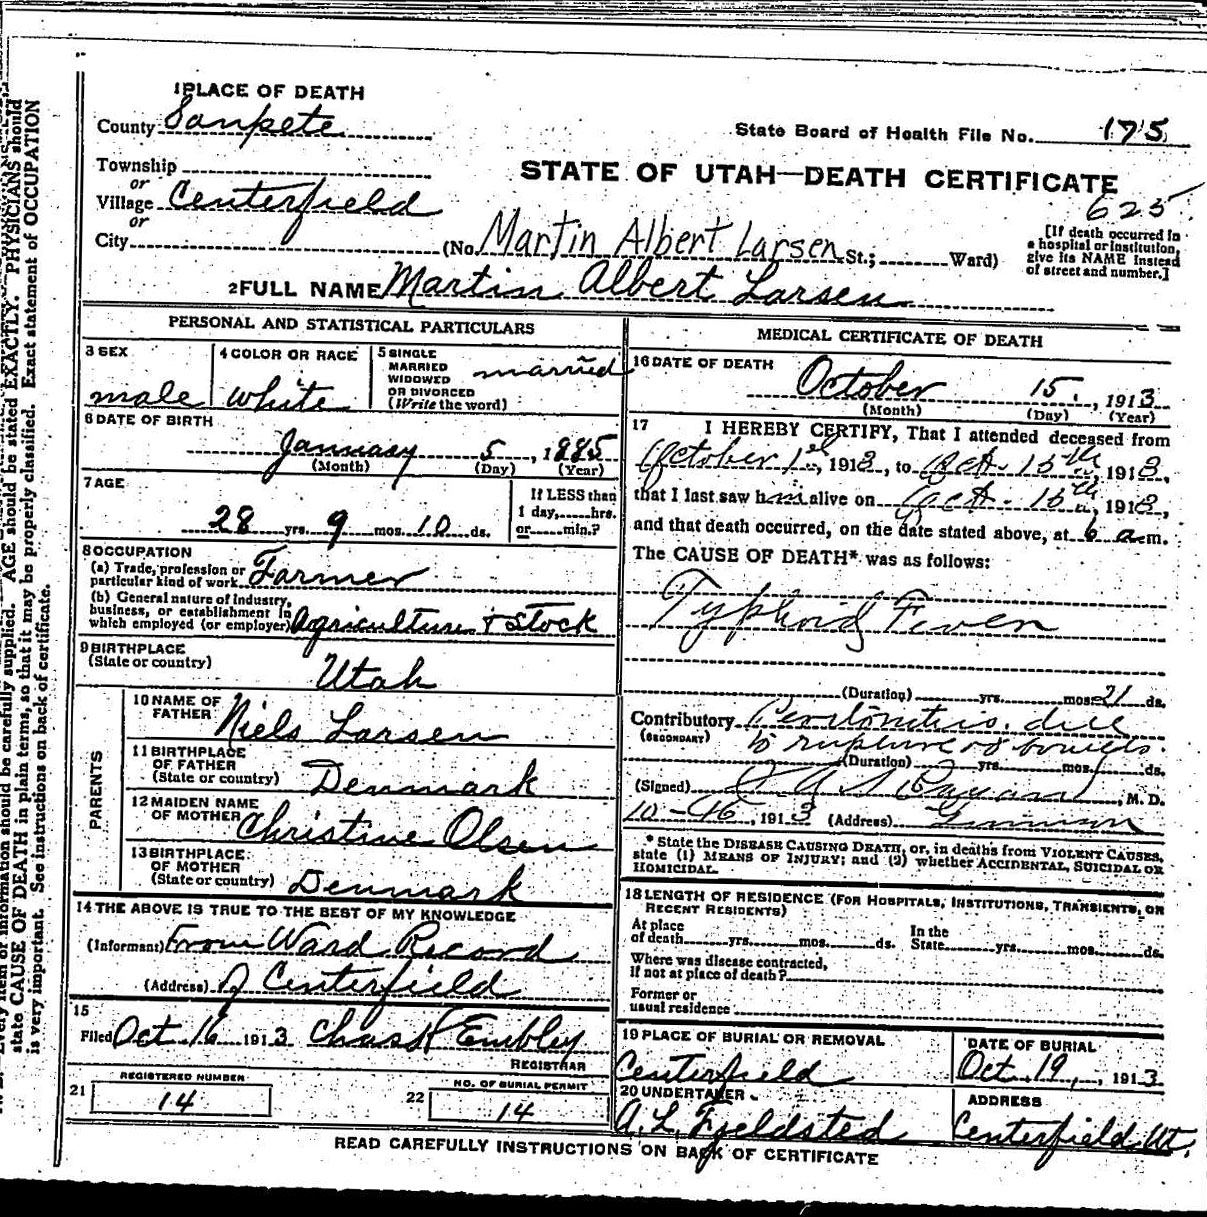 1 PLACE OF DEATH
County Sanpete
State Board of Health File No. 175
Township
STATE OF UTAH—DEATH CERTIFICATE
or
625
Village Centerfield
or
City (No. Martin Albert Larsen St.; Ward)
[If death occurred in
a hospital or institution,
give its NAME instead
of street and number.]
2 FULL NAME Martin Albert Larsen
PERSONAL AND STATISTICAL PARTICULARS
3 SEX
male
4 COLOR OR RACE
white
5 SINGLE
MARRIED
WIDOWED
OR DIVORCED
(Write the word)
married
6 DATE OF BIRTH
January 5, 1885
(Month) (Day) (Year)
7 AGE
28 yrs. 9 mos. 10 ds.
If LESS than
1 day, hrs.
or min.?
8 OCCUPATION
(a) Trade, profession or
particular kind of work Farmer
(b) General nature of industry,
business, or establishment in
which employed (or employer) Agriculture & Stock
9 BIRTHPLACE
(State or country)
Utah
PARENTS
10 NAME OF
FATHER Niels Larsen
11 BIRTHPLACE
OF FATHER
(State or country) Denmark
12 MAIDEN NAME
OF MOTHER Christine Olsen
13 BIRTHPLACE
OF MOTHER
(State or country) Denmark
14 THE ABOVE IS TRUE TO THE BEST OF MY KNOWLEDGE
(Informant) From Ward Record
(Address) of Centerfield
15
Filed Oct 16 1913 Chas H Embley
REGISTRAR
21 REGISTERED NUMBER
14
22 NO. OF BURIAL PERMIT
14
MEDICAL CERTIFICATE OF DEATH
16 DATE OF DEATH
October 15, 1913
(Month) (Day) (Year)
17 I HEREBY CERTIFY, That I attended deceased from
October 1st, 1913, to Oct. 15th, 1913,
that I last saw him alive on Oct. 15th, 1913,
and that death occurred, on the date stated above, at 6 a.m.
The CAUSE OF DEATH* was as follows:
Typhoid Fever
(Duration) yrs. mos. 21 ds.
Contributory Peritonitis, due
(SECONDARY) to rupture of bowels.
(Duration) yrs. mos. ds.
(Signed) M. D.
10-16, 1913 (Address)
* State the DISEASE CAUSING DEATH, or, in deaths from VIOLENT CAUSES,
state (1) MEANS OF INJURY; and (2) whether ACCIDENTAL, SUICIDAL OR
HOMICIDAL.
18 LENGTH OF RESIDENCE (FOR HOSPITALS, INSTITUTIONS, TRANSIENTS, OR
RECENT RESIDENTS)
At place
of death yrs. mos. ds.
In the
State yrs. mos. ds.
Where was disease contracted,
if not at place of death?
Former or
usual residence
19 PLACE OF BURIAL OR REMOVAL
Centerfield
DATE OF BURIAL
Oct. 19, 1913
20 UNDERTAKER
A. L. Fjeldsted
ADDRESS
Centerfield Ut.
READ CAREFULLY INSTRUCTIONS ON BACK OF CERTIFICATE
Every item of information should be carefully supplied. AGE should be stated EXACTLY. PHYSICIANS should
state CAUSE OF DEATH in plain terms, so that it may be properly classified. Exact statement of OCCUPATION
is very important. See instructions on back of certificate.